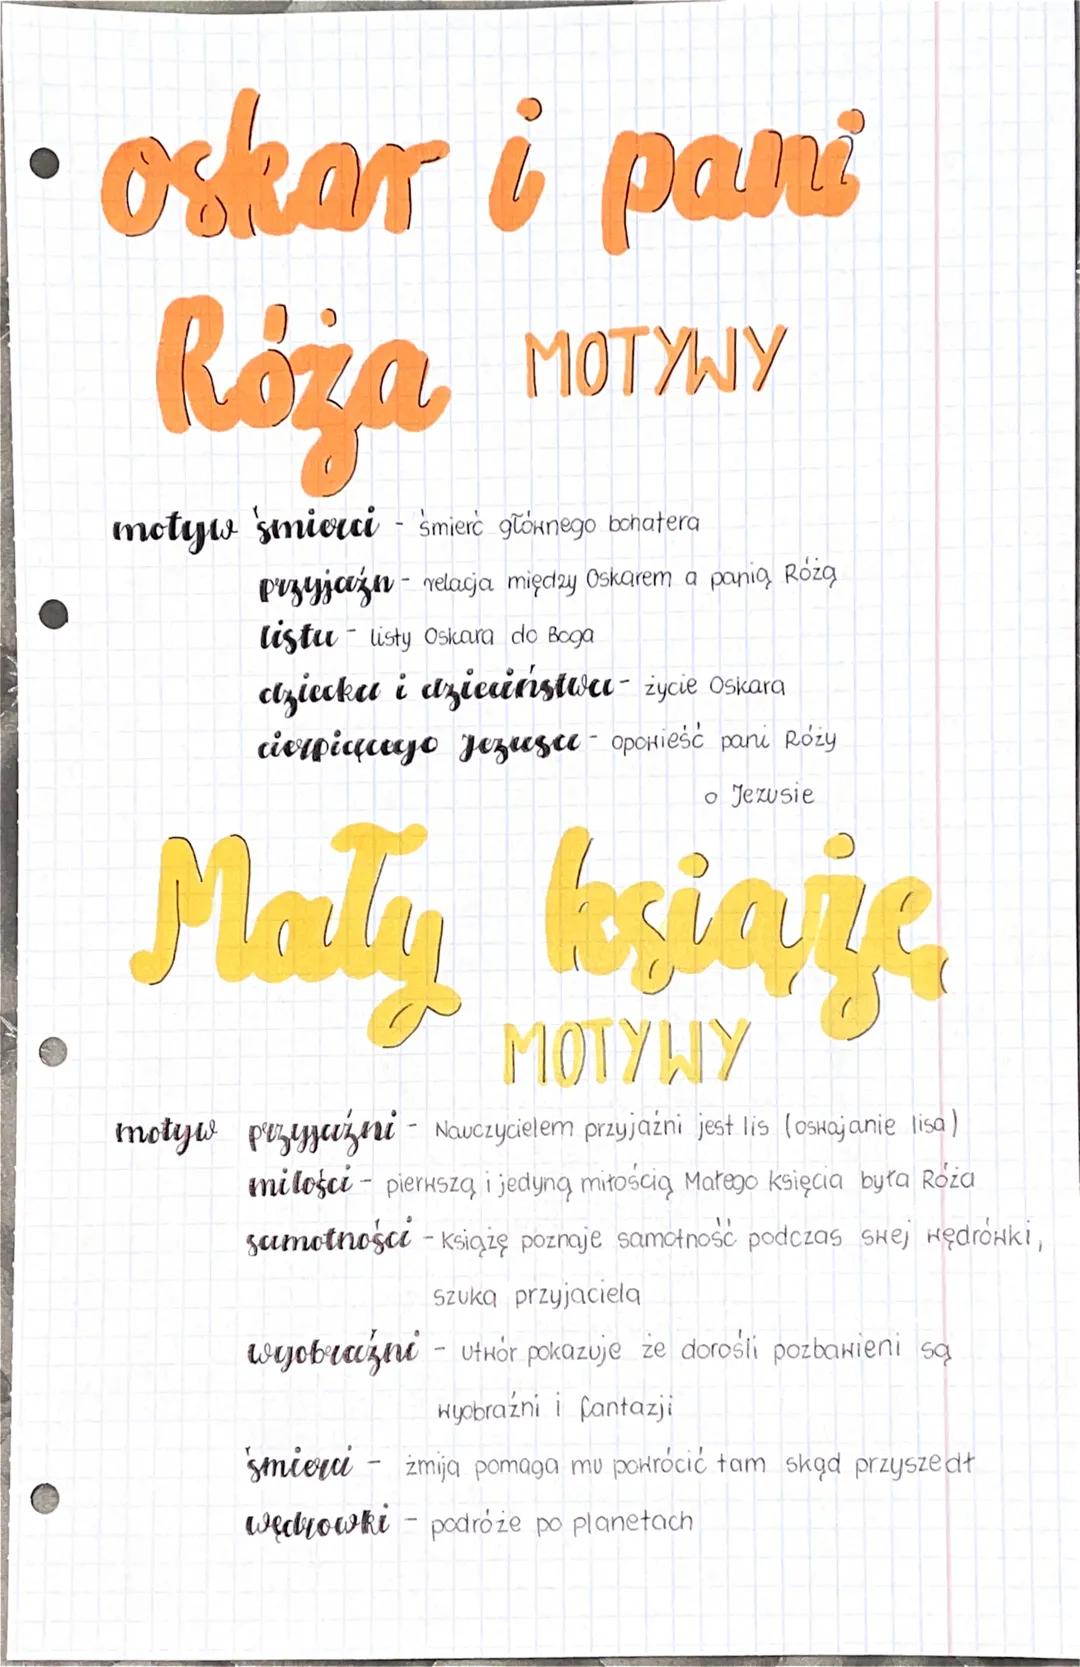 oskar i pani
Róża MOTYWY
motyw śmierci - śmierć głównego bohatera
przyjaźn - relacja między Oskarem a panią Różą
listu - listy Oskara do Boga
dziecka i dzieciństwa - życie Oskara
cierpiącego Jezusa - opowieść pani Róży
o Jezusie
Mały książę
MOTYWY
motyw przyjaźni - Nauczycielem przyjaźni jest lis (oswajanie lisa)
miłości - pierwszą i jedyną miłością Małego księcia była Róża
samotności - Książę poznaje samotność podczas swej wędrówki,
szuka przyjaciela
wyobraźni - utwór pokazuje że dorośli pozbawieni są
wyobraźni i fantazji
śmierci - żmija pomaga mu powrócić tam skąd przyszedł
wędrowki - podróże po planetach